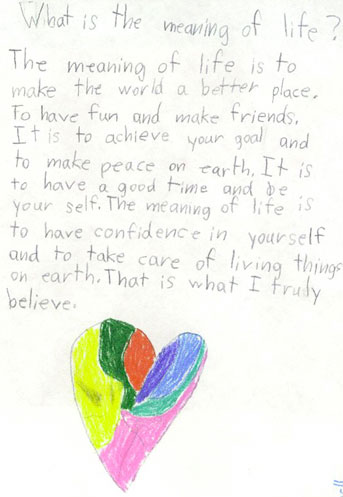 What is the meaning of life?
The meaning of life is to
make the world a better place.
To have fun and make friends.
It is to achieve your goal and
to make peace on earth. It is
to have a good time and be
your self. The meaning of life is
to have confidence in yourself
and to take care of living things
on earth. That is what I truly
believe.